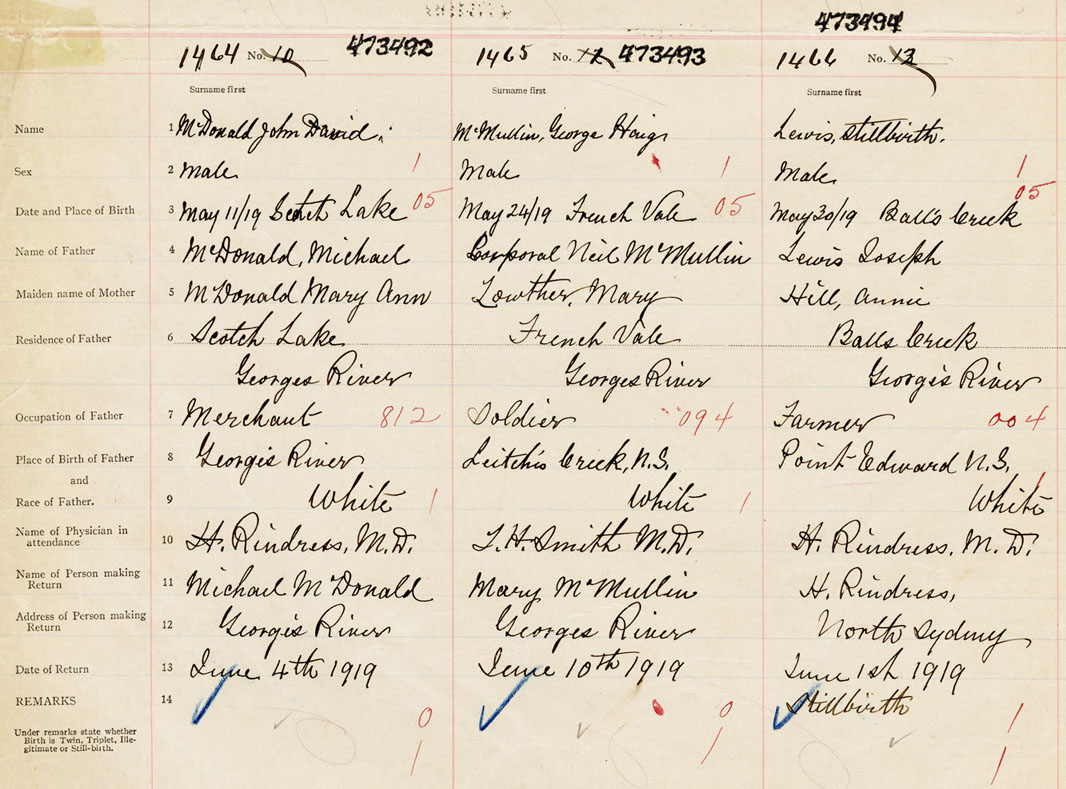 473494
1464 No. 10 473492 1465 No. 473493 1466 No. 13
Surname first Surname first Surname first
Name 1 McDonald John David McMullin, George Haig Lewis, Stillbirth.
Sex 2 Male 1 Male 1 Male 1
05
Date and Place of Birth 3 May 11/19 Scotch Lake 05 May 24/19 French Vale 05 May 30/19 Ball's Creek
Name of Father 4 McDonald, Michael Corporal Neil McMullin Lewis Joseph
Maiden name of Mother 5 McDonald Mary Ann Lowther, Mary Hill, Annie
Residence of Father 6 Scotch Lake French Vale Balls Creek
Georges River Georges River George's River
Occupation of Father 7 Merchant 812 Soldier 094 Farmer 004
Place of Birth of Father 8 George's River Leitch's Creek, N.S. Point Edward N.S.
and
Race of Father. 9 White 1 White 1 White 1
Name of Physician in attendance 10 H. Rindress, M.D. L.H. Smith M.D. H. Rindress, M.D.
Name of Person making Return 11 Michael McDonald Mary McMullin H. Rindress,
Address of Person making Return 12 George's River Georges River North Sydney
Date of Return 13 June 4th 1919 June 10th 1919 June 1st 1919
REMARKS 14 Stillbirth
0 0 1
Under remarks state whether
Birth is Twin, Triplet, Ille-
gitimate or Still-birth.
1 1 1